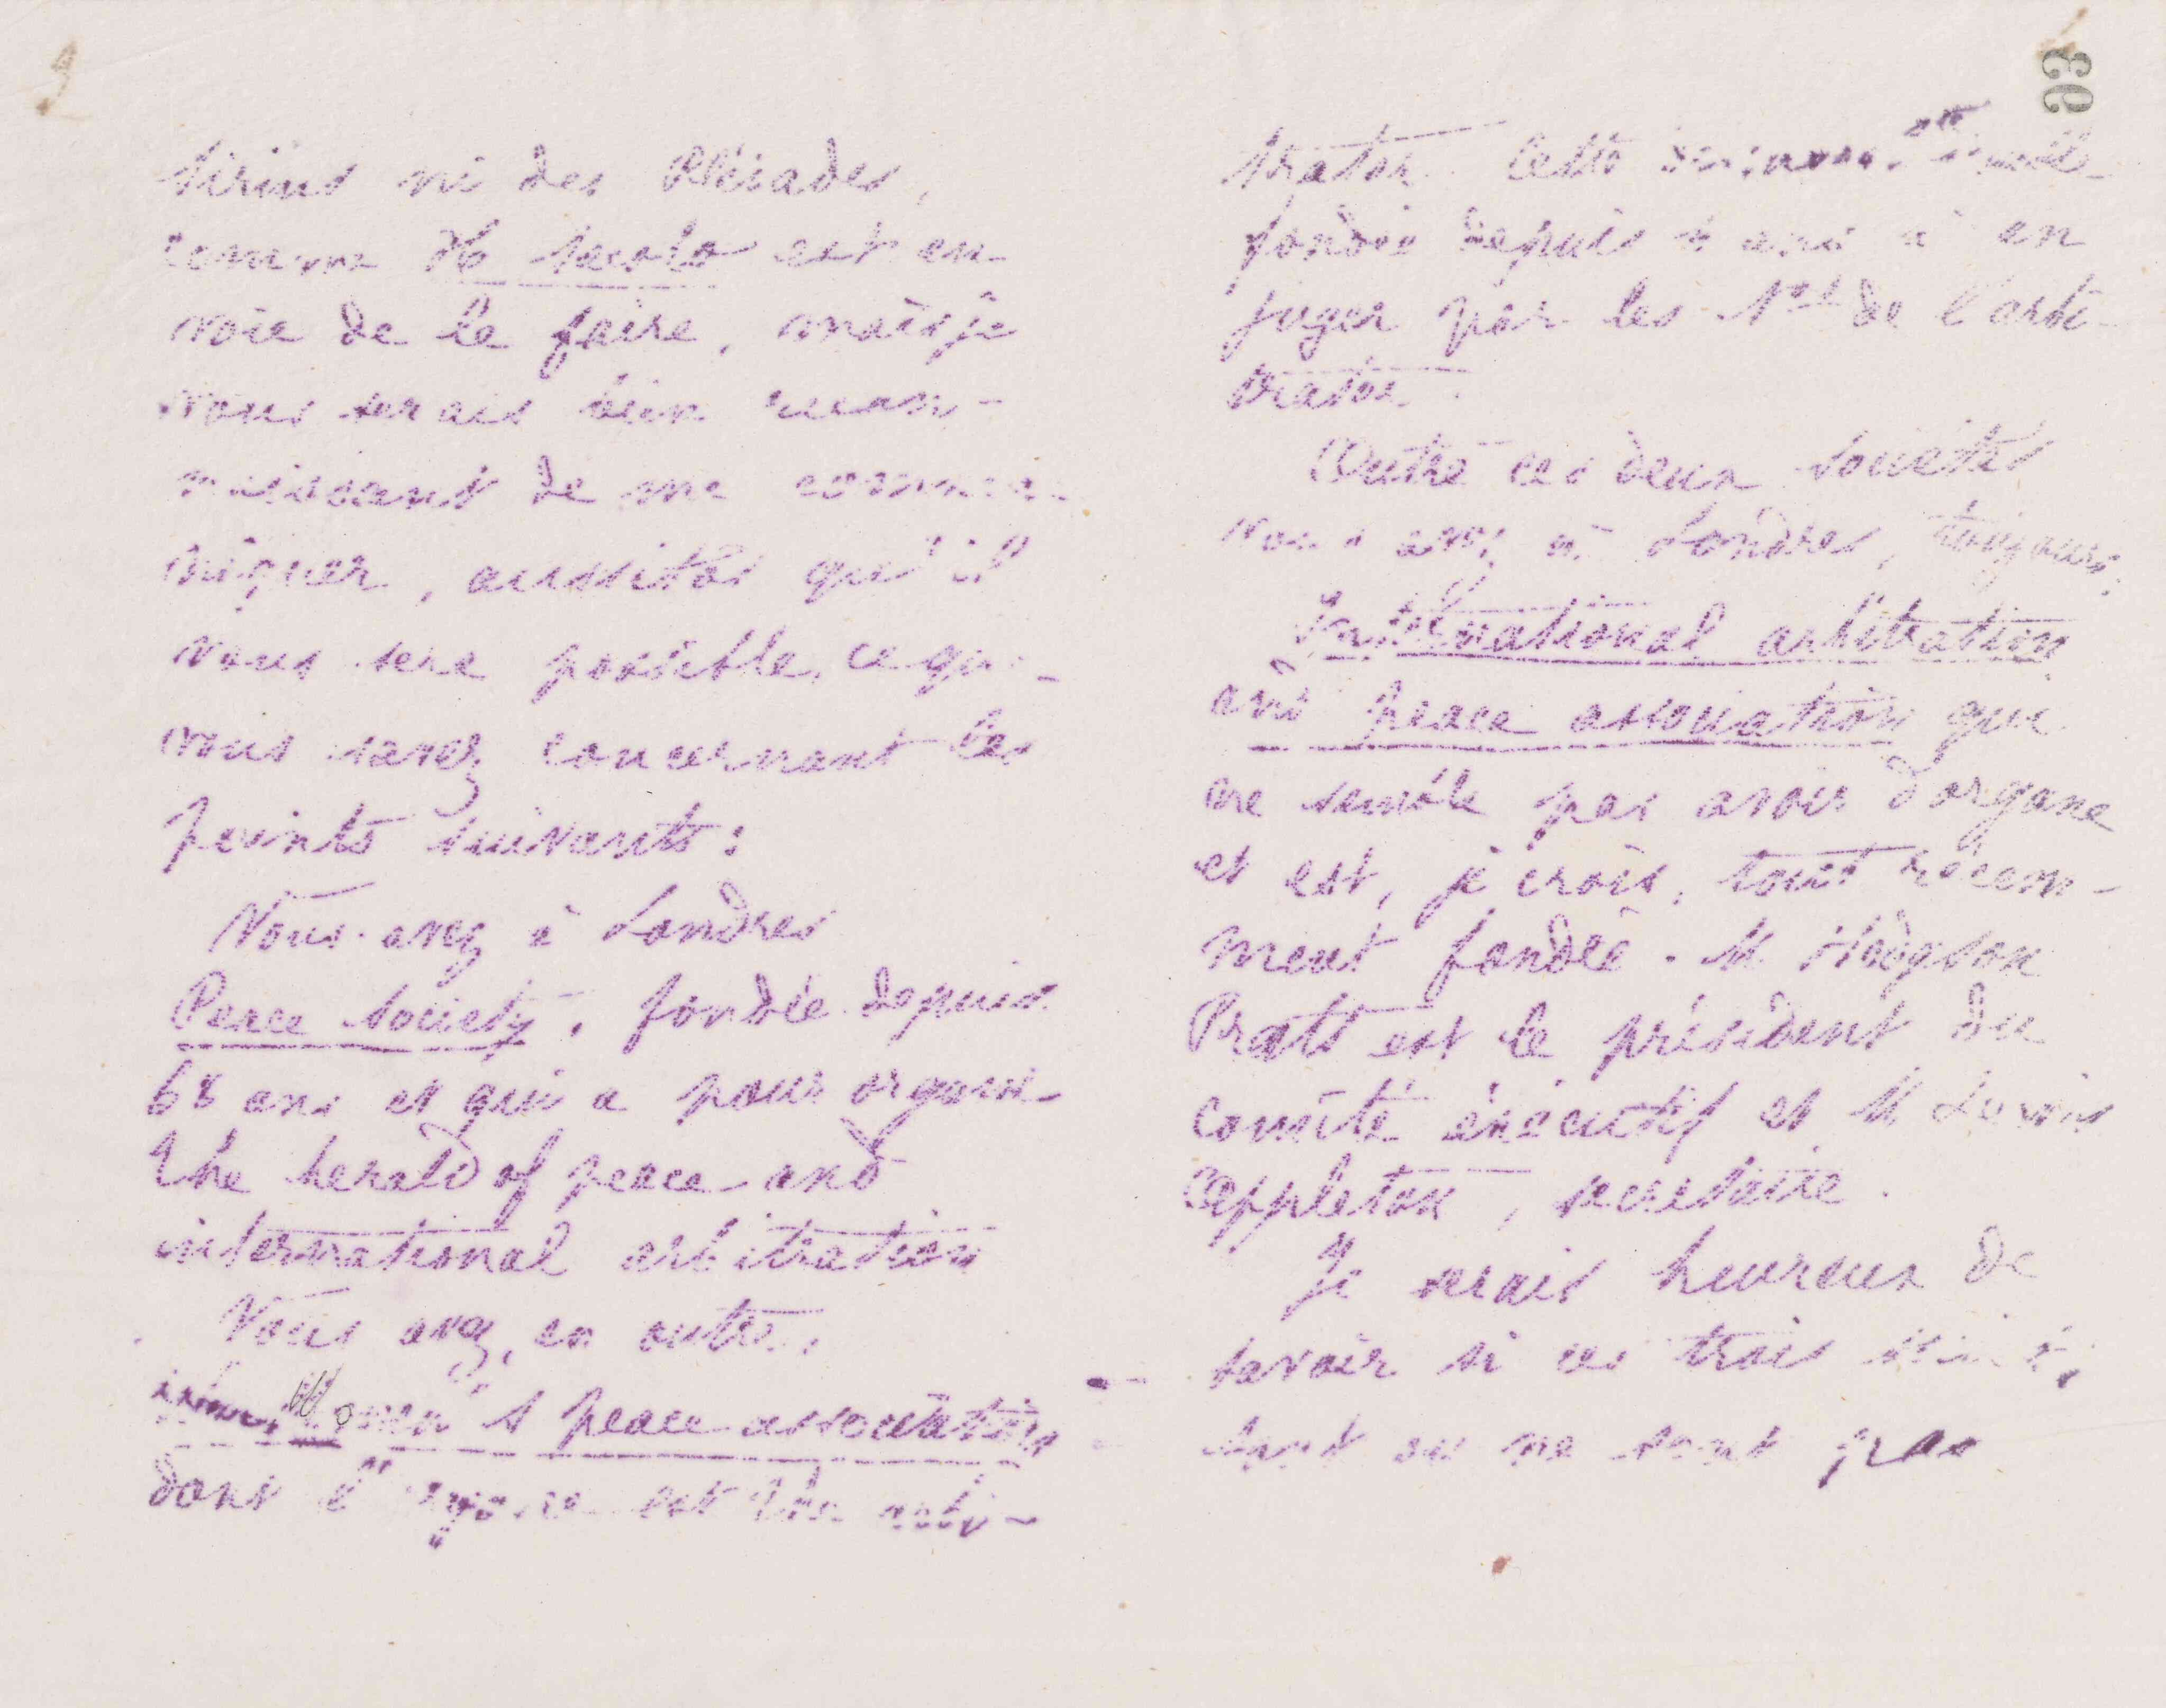 Sirius ni des Pléiades,
comme Il Secolo est en
voie de le faire, mais je
vous serais bien recon-
naissant de me commu-
niquer, aussitôt qu'il
vous sera possible, ce que
vous savez concernant les
points suivants :
Vous avez à Londres
Peace Society, fondée depuis
68 ans et qui a pour organe
the herald of peace and
international arbitration
Vous avez, en outre,
Women's peace association
dont l'organe est the arbi-
trator. Cette
fondée depuis ans à en
juger par les Nos de l'arbi-
trator.
Outre ces deux sociétés
vous avez à Londres, toujours,
International arbitration
and peace association qui
ne semble pas avoir d'organe
et est, je crois, tout récem-
ment fondée. M. Hodgson
Pratt est le président du
comité éxécutif et M. Lewis
Appleton, secrétaire.
Je serais heureux de
savoir si ces trois
sont ou ne sont pas
93